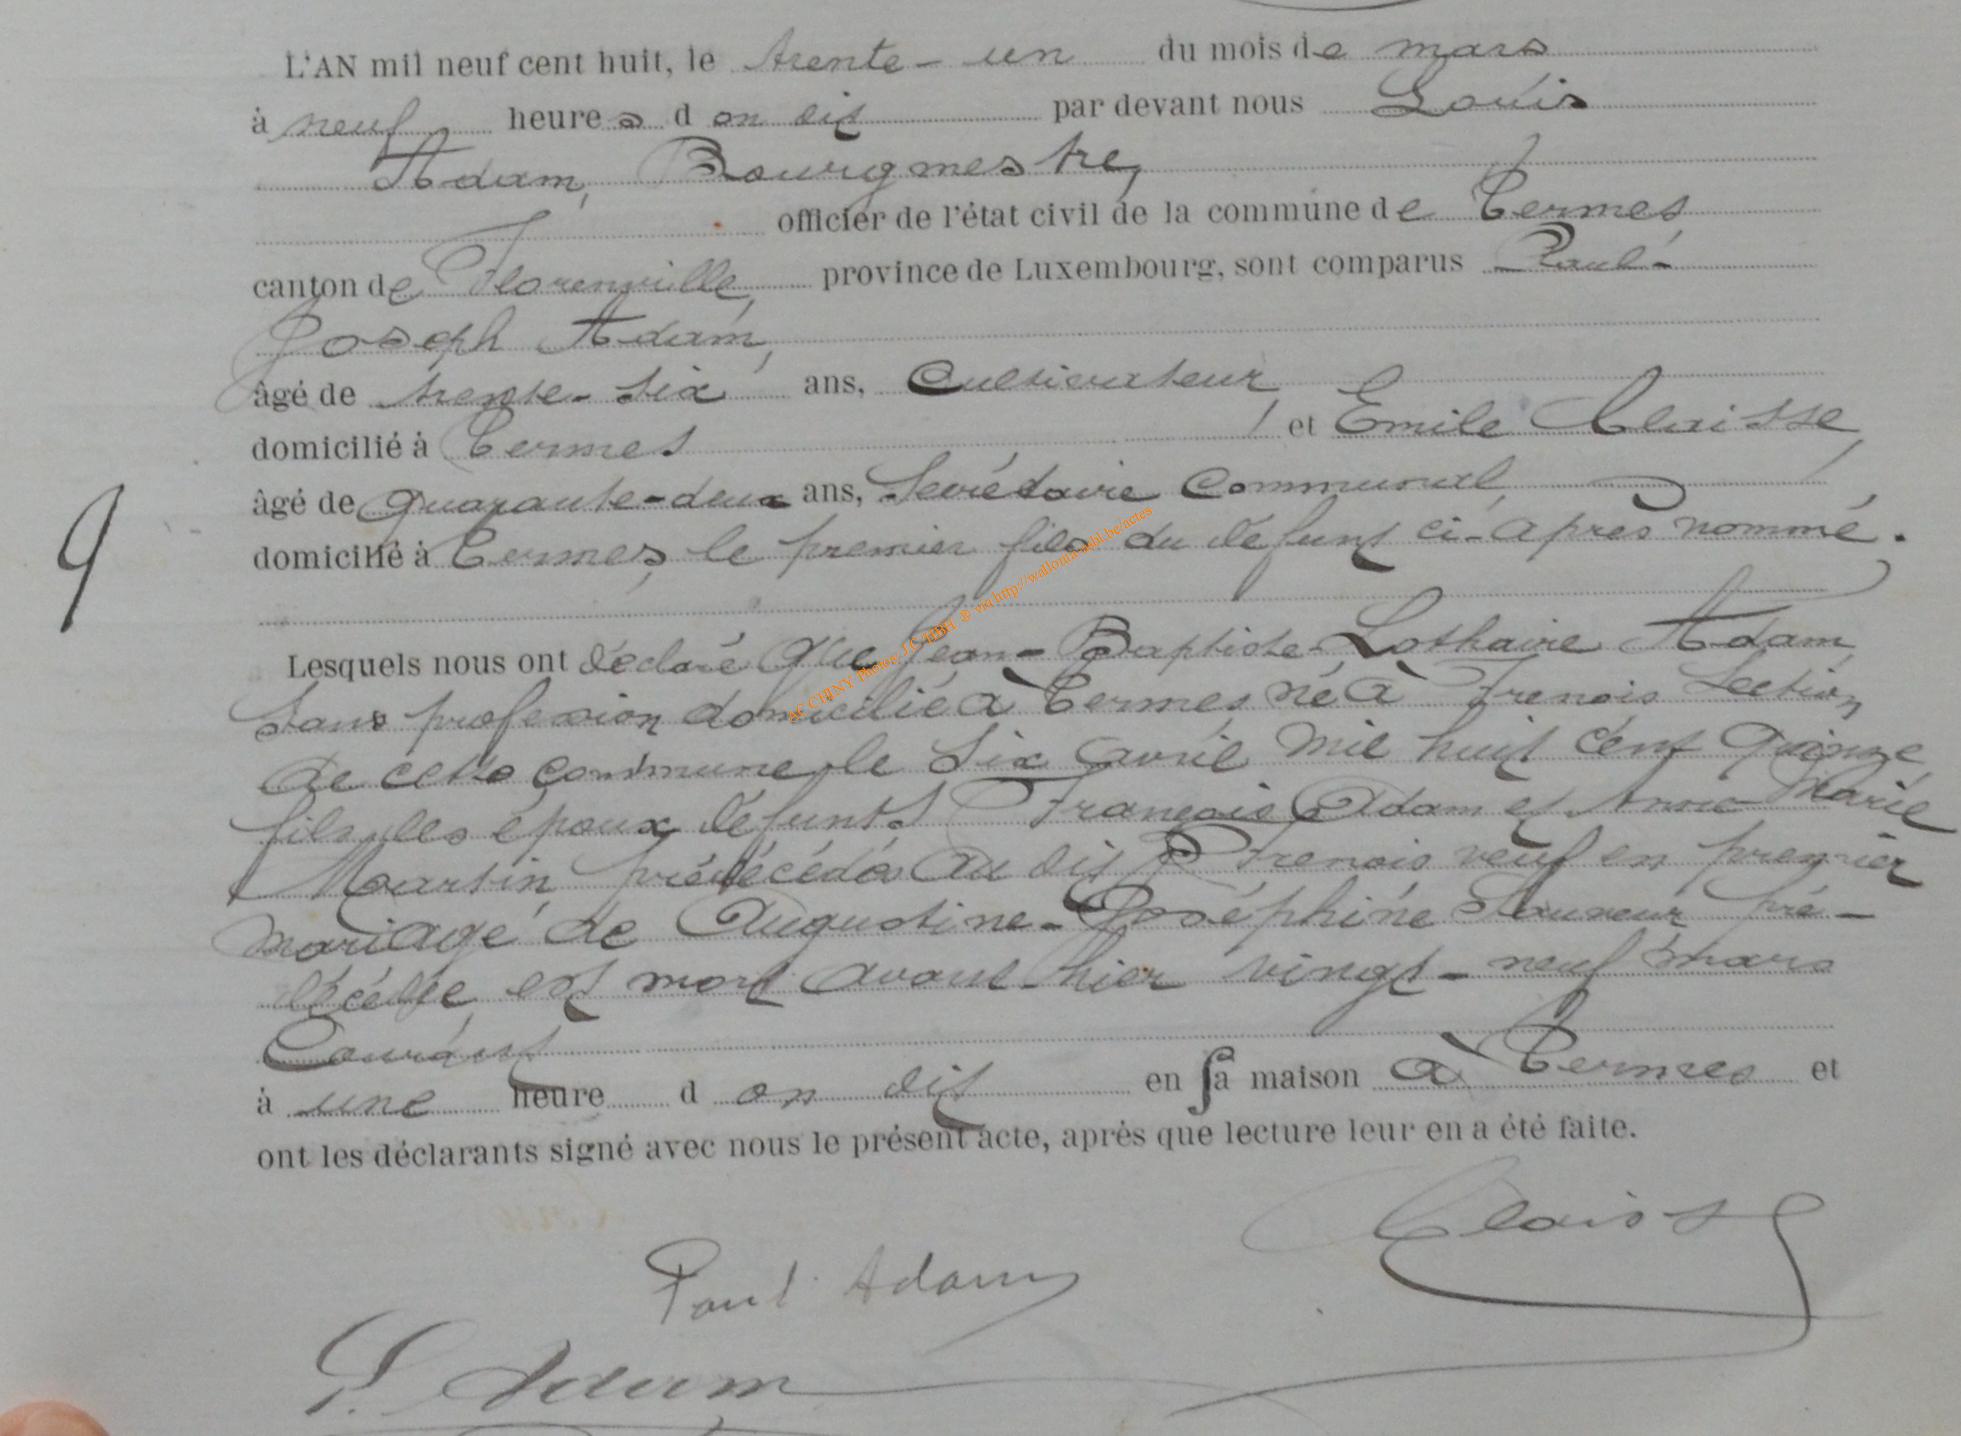 L'AN mil neuf cent huit, le trente-un du mois de mars
à neuf heures d on dit par devant nous Louis
Adam, Bourgmestre,
officier de l'état civil de la commune de Termes,
canton de Florenville, province de Luxembourg, sont comparus Paul-
Joseph Adam,
âgé de trente-six ans, Cultivateur,
domicilié à Termes et Emile Claisse,
âgé de quarante-deux ans, Secrétaire Communal,
domicilié à Termes, le premier fils du défunt ci-après nommé.
9
Lesquels nous ont déclaré que Jean-Baptiste-Lothaire Adam,
Sans profession domicilié à Termes né à Frenois Section
de cette commune, le Six avril mil huit cent quinze,
fils des époux défunts François Adam et Anne Marie
Martin, prédécédés au dit Frenois veuf en premier
mariage de Augustine-Joséphine pré-
décédée, est mort avant-hier vingt-neuf mars
Courant
à une heure d on dit en sa maison à Termes et
ont les déclarants signé avec nous le présent acte, après que lecture leur en a été faite.
Claisse
Paul Adam
L. Adam
AC CHINY Photos J.C. HBH ® via http://wallonia.asbl.be/actes